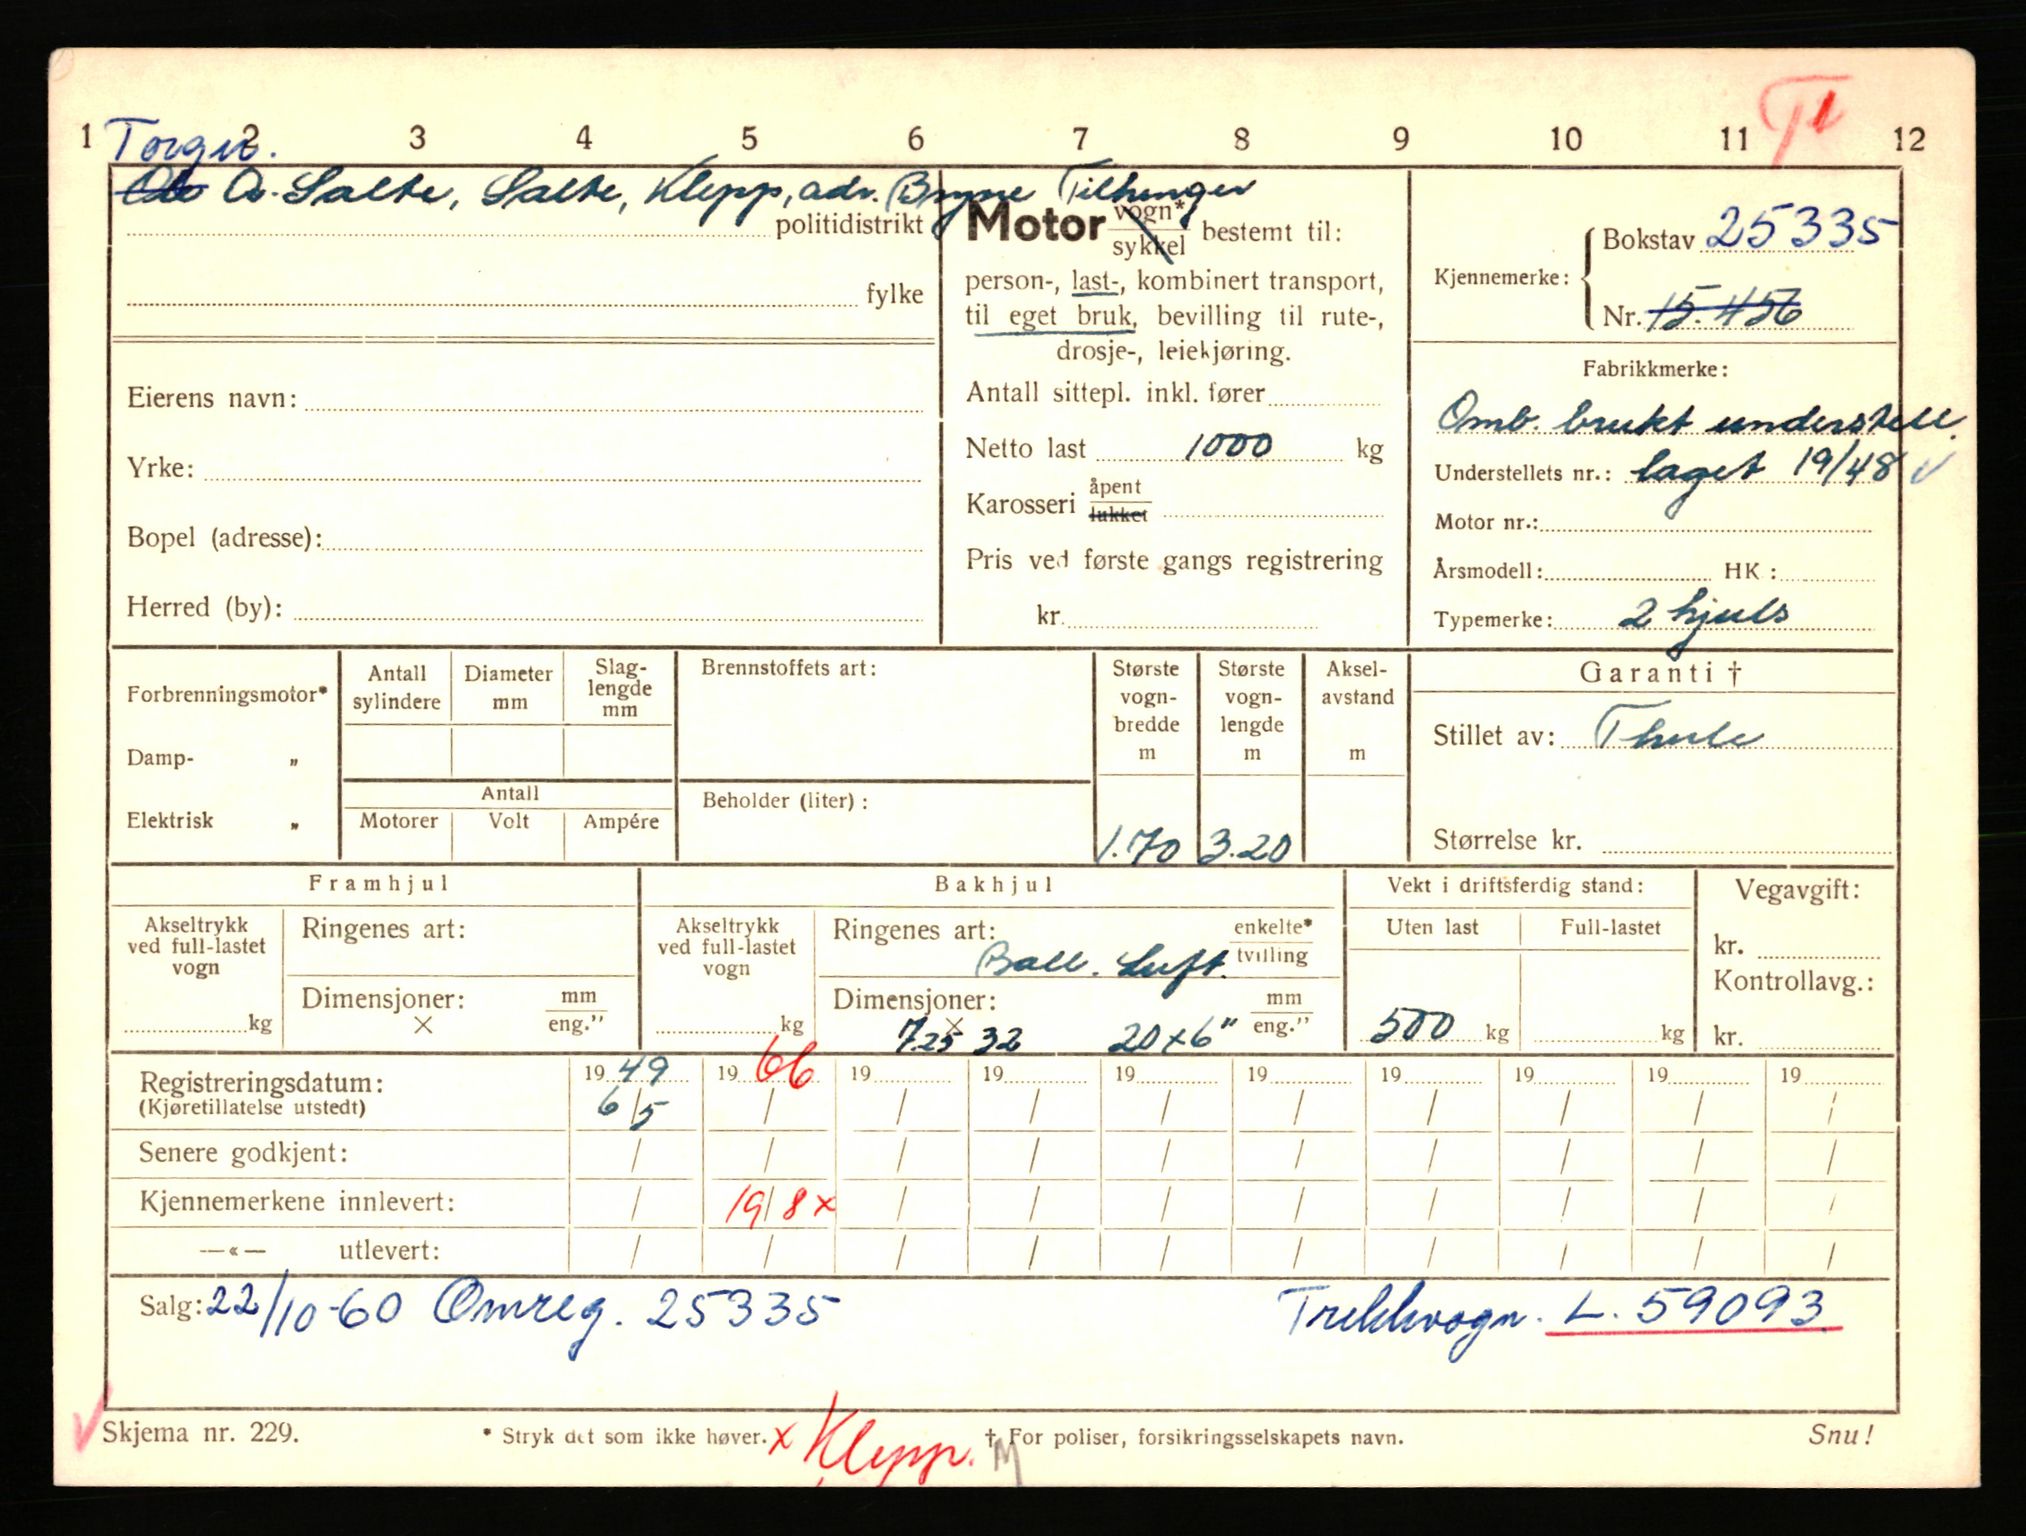 T1
1 2 3 4 5 6 7 8 9 10 11 12
Torger.
Ole A. Salte, Salte, Klepp, adr. Bryne
politidistrikt
fylke
Eierens navn:
Yrke:
Bopel (adresse):
Herred (by):
Tilhenger
Motor vogn* / sykkel bestemt til:
person-, last-, kombinert transport,
til eget bruk, bevilling til rute-,
drosje-, leiekjøring.
Antall sittepl. inkl. fører
Netto last 1000 kg
Karosseri åpent / lukket
Pris ved første gangs registrering
kr.
Kjennemerke: Bokstav 25335
Nr. 15.456
Fabrikkmerke:
Omb. brukt understell.
Understellets nr.: laget 19/48
Motor nr.:
Årsmodell: HK:
Typemerke: 2 hjuls
Forbrenningsmotor*
Damp- „
Elektrisk „
Antall sylindere
Diameter mm
Slag-lengde mm
Antall
Motorer Volt Ampére
Brennstoffets art:
Beholder (liter):
Største vogn-bredde m
1.70
Største vogn-lengde m
3.20
Aksel-avstand m
Garanti †
Stillet av: Thule
Størrelse kr.
Framhjul
Akseltrykk ved full-lastet vogn
kg
Ringenes art:
Dimensjoner: mm / eng.”
×
Bakhjul
Akseltrykk ved full-lastet vogn
kg
Ringenes art: enkelte* / tvilling
Ball. Luft.
Dimensjoner: mm / eng.”
7.25 × 32 20 x 6"
Vekt i driftsferdig stand:
Uten last Full-lastet
500 kg kg
Vegavgift:
kr.
Kontrollavg.:
kr.
Registreringsdatum: 19 49 19 66 19 19 19 19 19 19 19 19
(Kjøretillatelse utstedt) 6/5 / / / / / / / / /
Senere godkjent: / / / / / / / / / /
Kjennemerkene innlevert: / 19/8 x / / / / / / / /
—«— utlevert: / / / / / / / / / /
Salg: 22/10-60 Omreg. 25335 Trekkvogn. L. 59093
Skjema nr. 229. * Stryk det som ikke høver. x Klepp. M † For poliser, forsikringsselskapets navn. Snu!